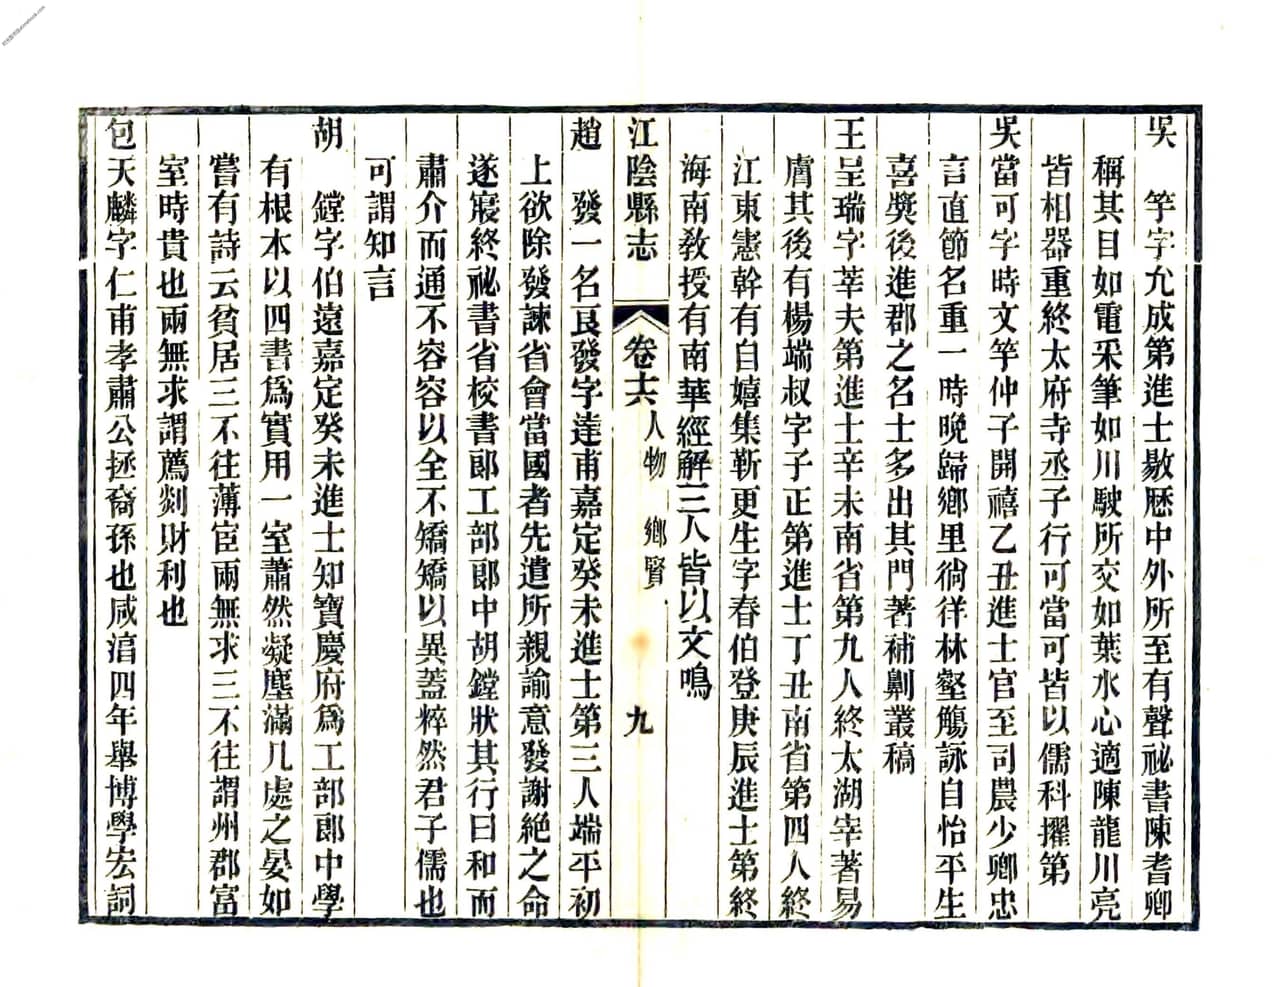 吳　竽字允成第進士敭歷中外所至有聲祕書陳耆卿
稱其目如電采筆如川駛所交如葉水心適陳龍川亮
皆相器重終太府寺丞子行可當可皆以儒科擢第
吳當可字時文竽仲子開禧乙丑進士官至司農少卿忠
言直節名重一時晚歸鄉里徜徉林壑觴詠自怡平生
喜獎後進郡之名士多出其門著補劓叢稿
王呈瑞字莘夫第進士辛未南省第九人終太湖宰著易
膚其後有楊端叔字子正第進士丁丑南省第四人終
江東憲幹有自嬉集靳更生字春伯登庚辰進士第終
海南教授有南華經解三人皆以文鳴
江陰縣志　卷十六　人物　鄉賢　九
趙　發一名良發字達甫嘉定癸未進士第三人端平初
上欲除發諫省會當國者先遣所親諭意發謝絕之命
遂寢終祕書省校書郎工部郎中胡鏜狀其行曰和而
肅介而通不容容以全不矯矯以異蓋粹然君子儒也
可謂知言
胡　鏜字伯遠嘉定癸未進士知寶慶府爲工部郎中學
有根本以四書爲實用一室蕭然凝塵滿几處之晏如
嘗有詩云貧居三不往薄宦兩無求三不往謂州郡富
室時貴也兩無求謂薦剡財利也
包天麟字仁甫孝肅公拯裔孫也咸淳四年舉博學宏詞